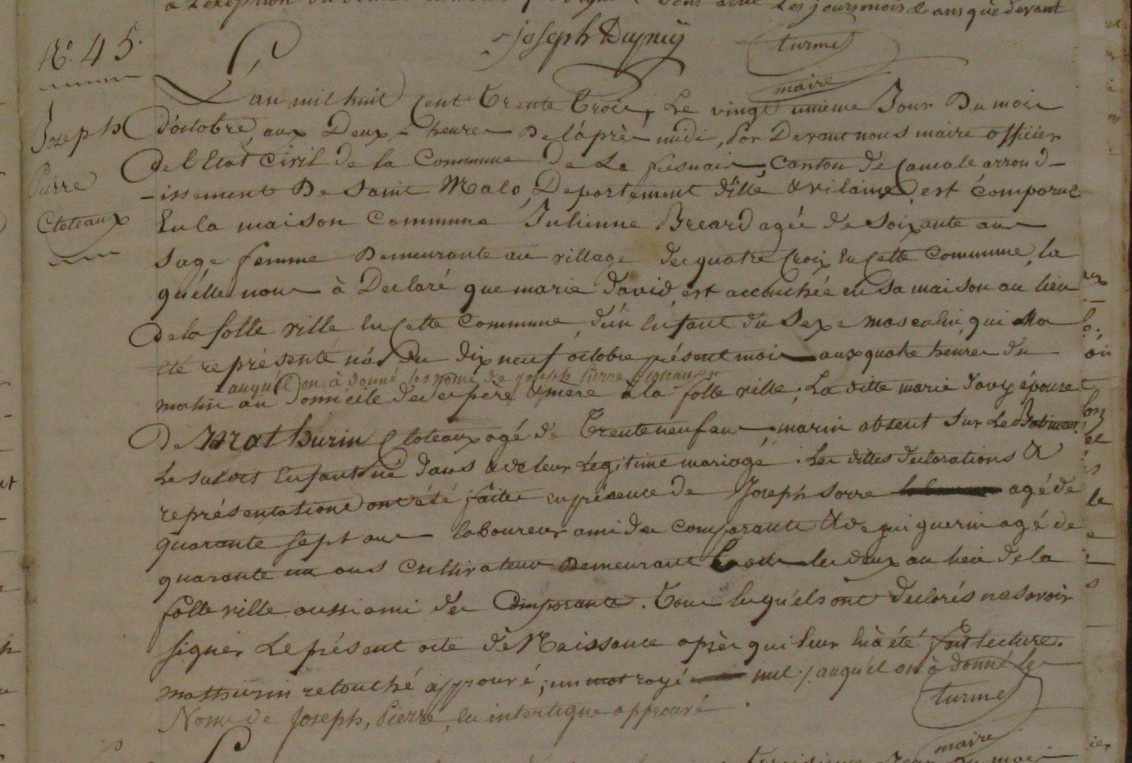 Les jours mois & ans que devant
Joseph Dupuy
turmel
maire
N°. 45.
Joseph
Pierre
Cloteaux
L'an mil huit Cent Trente Trois, Le vingt unieme Jour Du mois
d'octobre aux Deux heures De l'après midi, Par Devant nous maire officier
De l'Etat Civil De la Commune De La fresnais, Canton de Cancale arrond-
-issement De Saint Malo, Departement d'ille & vilaine, est comparue
En la maison Commune Julienne Breard agée de Soixante ans
Sage femme Demeurante au village des quatre Croix En Cette Commune, la
quelle nous à Declaré que marie David est accouchée en sa maison au lieu
De la folle ville En Cette Commune, d'un Enfant du Sexe masculin, qui
été représenté née Du dix neuf octobre présent mois aux quatre heures du
auquel on à donné les noms de Joseph Pierre
matin au Domicile des ses père & mère à la folle ville, La ditte marie davy épouse
De Mathurin Cloteaux agé de Trente neuf ans marin absent Sur Les Batiments
Le susdit Enfant né dans & de leur Legitime mariage. Les dittes declarations &
représentations ont été faites en présence de Joseph Sorre agé de
quarante Sept ans laboureur ami des comparante & de gui guerin agé de
quarante un ans Cultivateur Demeurant Tous les deux au lieu de la
folle ville aussi ami des Comparante. Tous lesquels ont declarés ne savoir
signer Le présent acte de Naissance après qu'il leur en à été fait lecture.
Mathurin retouché approuvé; un mot rayé nul; auquel on à donné les
Noms de Joseph, Pierre, en interligne approuvé.
turmel
maire